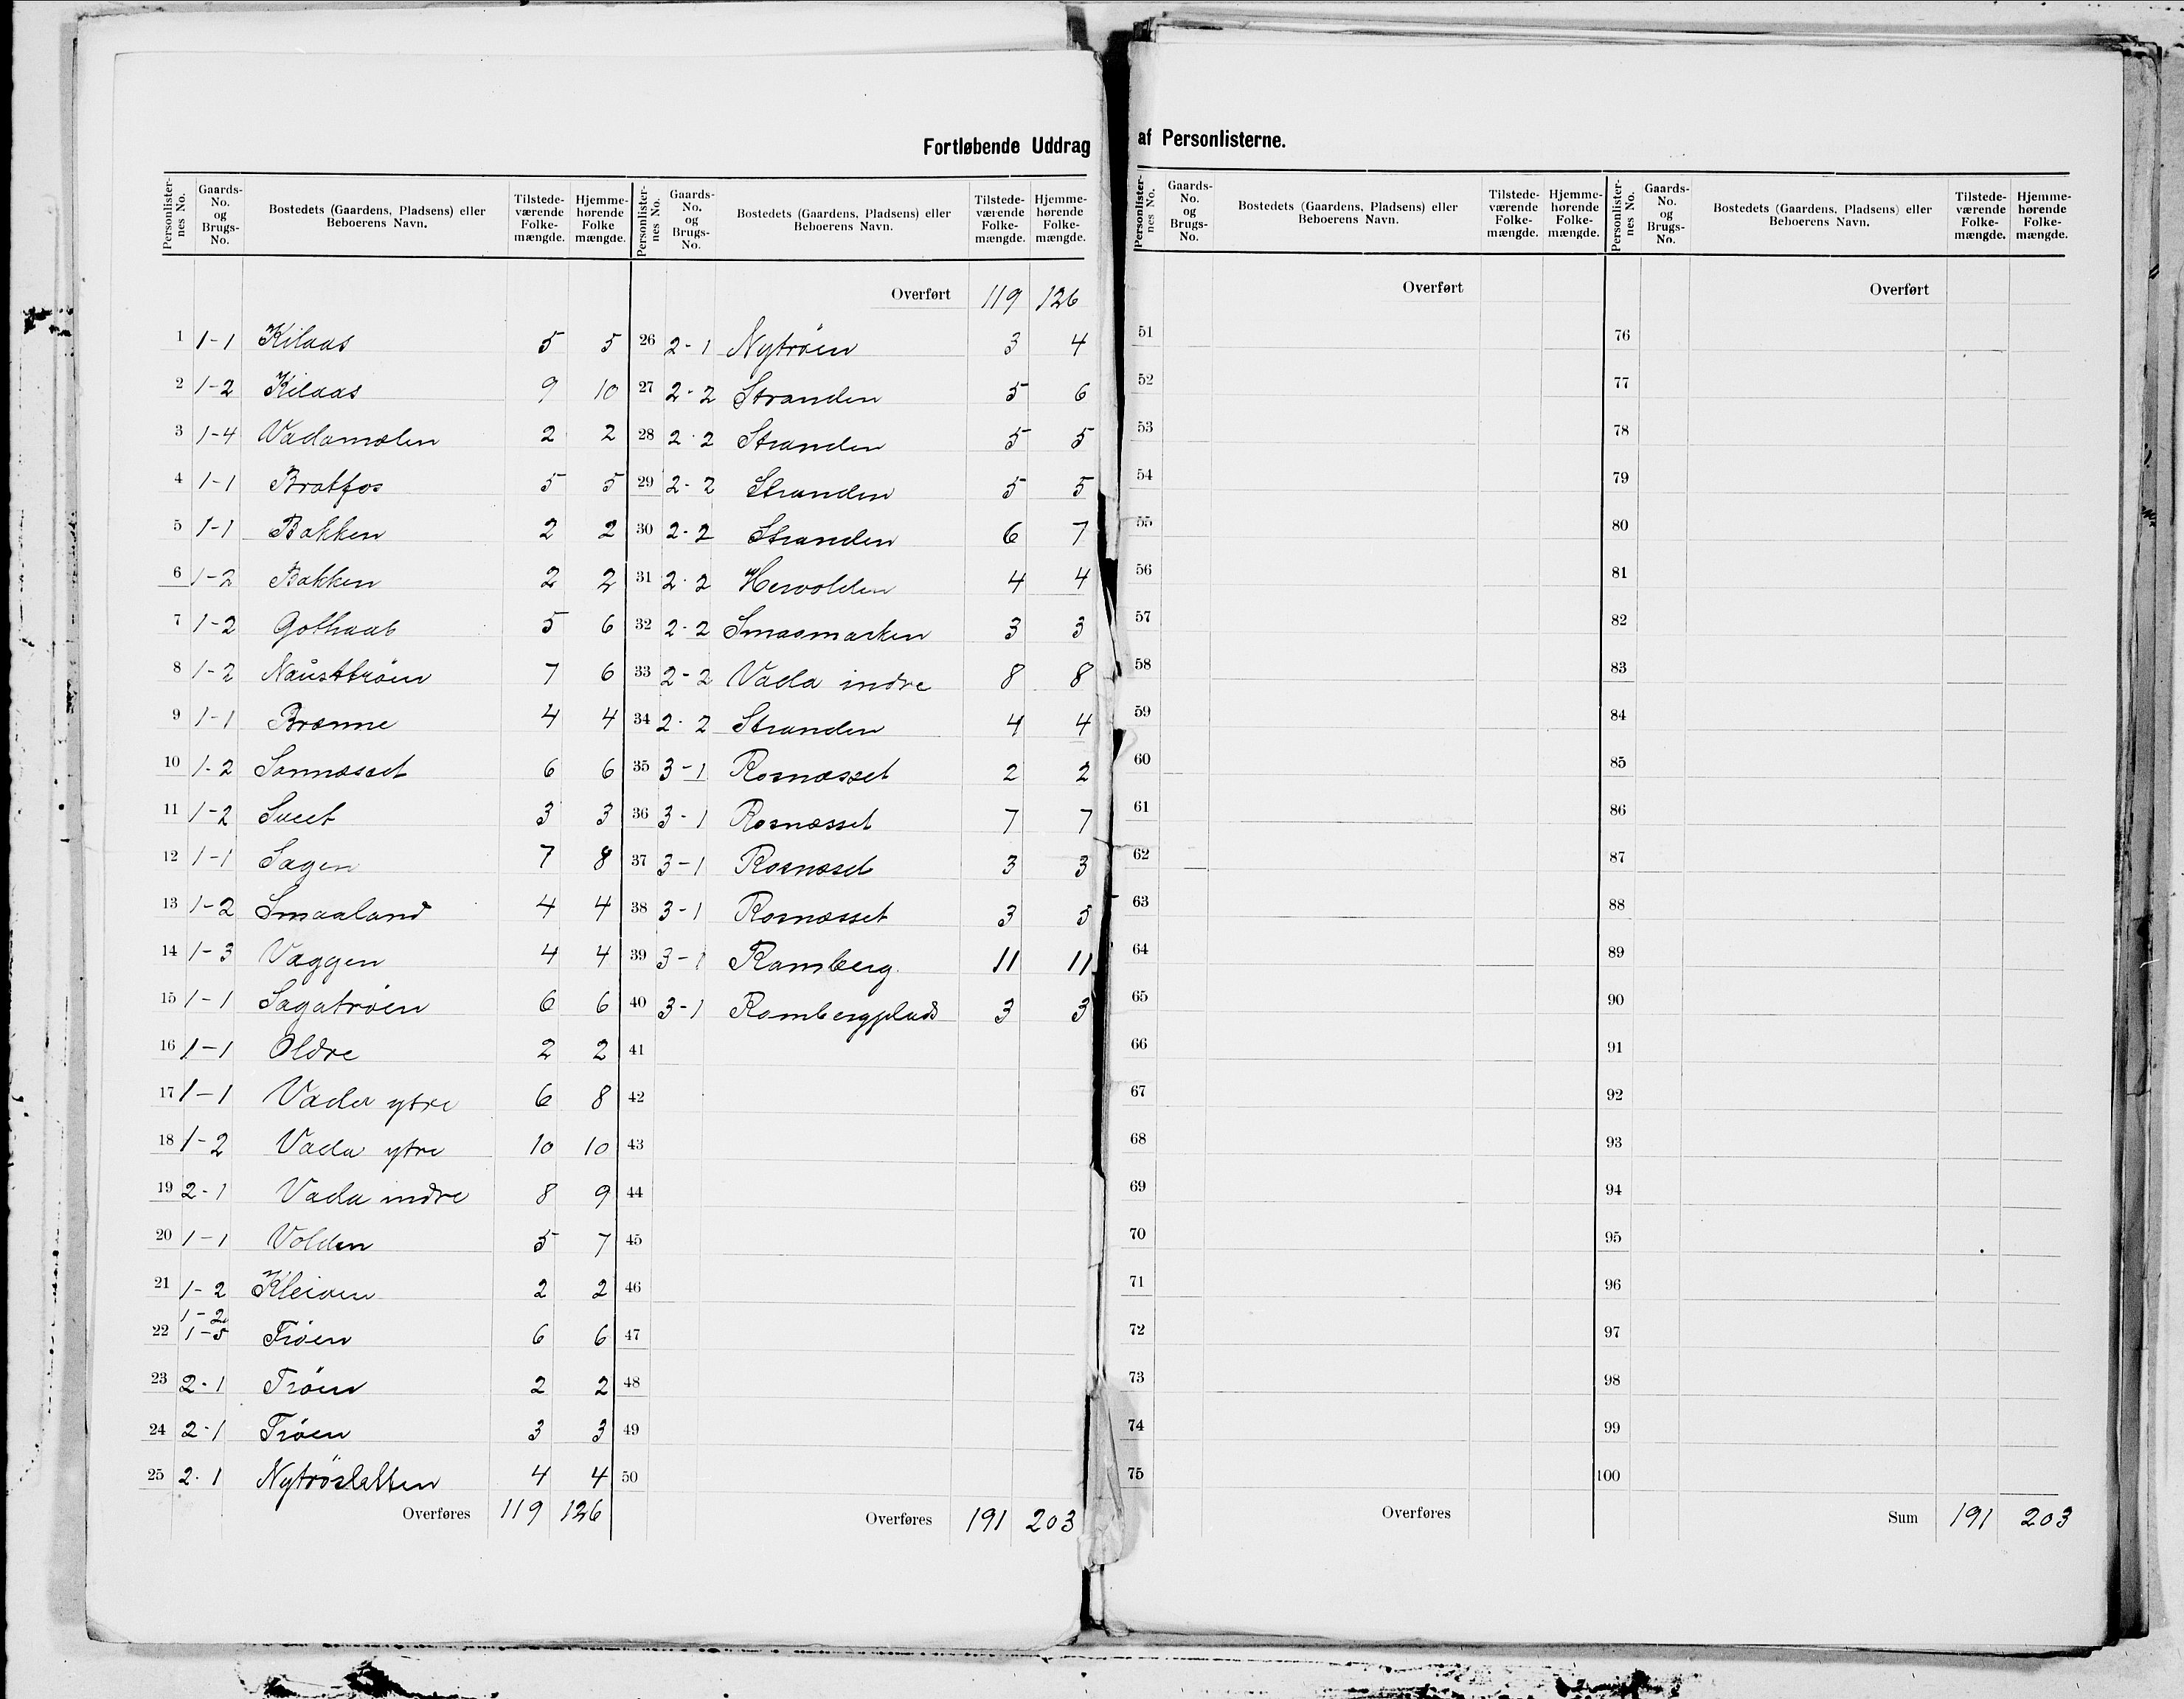 Fortløbende Uddrag af Personlisterne.
Personlister-nes No. Gaards-No. og Brugs-No. Bostedets (Gaardens, Pladsens) eller Beboerens Navn. Tilstede-værende Folke-mængde. Hjemme-hørende Folke mængde.
1 1-1 Kilaas 5 5
2 1-2 Kilaas 9 10
3 1-4 Vadamælen 2 2
4 1-1 Bratfos 5 5
5 1-1 Bakken 2 2
6 1-2 Bakken 2 2
7 1-2 Gothaab 5 6
8 1-2 Nausttröen 7 6
9 1-1 Brænne 4 4
10 1-2 Sannæsset 6 6
11 1-2 Sveet 3 3
12 1-1 Sagen 7 8
13 1-2 Smaaland 4 4
14 1-3 Væggen 4 4
15 1-1 Sagatröen 6 6
16 1-1 Oldre 2 2
17 1-1 Vada ytre 6 8
18 1-2 Vada ytre 10 10
19 2-1 Vada indre 8 9
20 1-1 Volden 5 7
21 1-2 Kleiven 2 2
1-2
22 1-5 Tröen 6 6
23 2-1 Tröen 2 2
24 2-1 Tröen 3 3
25 2-1 Nytrösletten 4 4
Overføres 119 126
Personlister-nes No. Gaards-No. og Brugs-No. Bostedets (Gaardens, Pladsens) eller Beboerens Navn. Tilstede-værende Folke-mængde. Hjemme-hørende Folke-mængde.
Overført 119 126
26 2-1 Nytröen 3 4
27 2-2 Stranden 5 6
28 2-2 Stranden 5 5
29 2-2 Stranden 5 5
30 2-2 Stranden 6 7
31 2-2 Hervolden 4 4
32 2-2 Smasmarken 3 3
33 2-2 Vada indre 8 8
34 2-2 Stranden 4 4
35 3-1 Rosnæsset 2 2
36 3-1 Rosnæsset 7 7
37 3-1 Rosnæset 3 3
38 3-1 Rosnæsset 3 5
39 3-1 Ramberg 11 11
40 3-1 Rambergplads 3 3
41
42
43
44
45
46
47
48
49
50
Overføres 191 203
Personlister-nes No. Gaards-No. og Brugs-No. Bostedets (Gaardens, Pladsens) eller Beboerens Navn. Tilstede-værende Folke-mængde. Hjemme-hørende Folke-mængde.
Overført
51
52
53
54
55
56
57
58
59
60
61
62
63
64
65
66
67
68
69
70
71
72
73
74
75
Overføres
Personlister-nes No. Gaards-No. og Brugs-No. Bostedets (Gaardens, Pladsens) eller Beboerens Navn. Tilstede-værende Folke-mængde. Hjemme-hørende Folke-mængde.
Overført
76
77
78
79
80
81
82
83
84
85
86
87
88
89
90
91
92
93
94
95
96
97
98
99
100
Sum 191 203